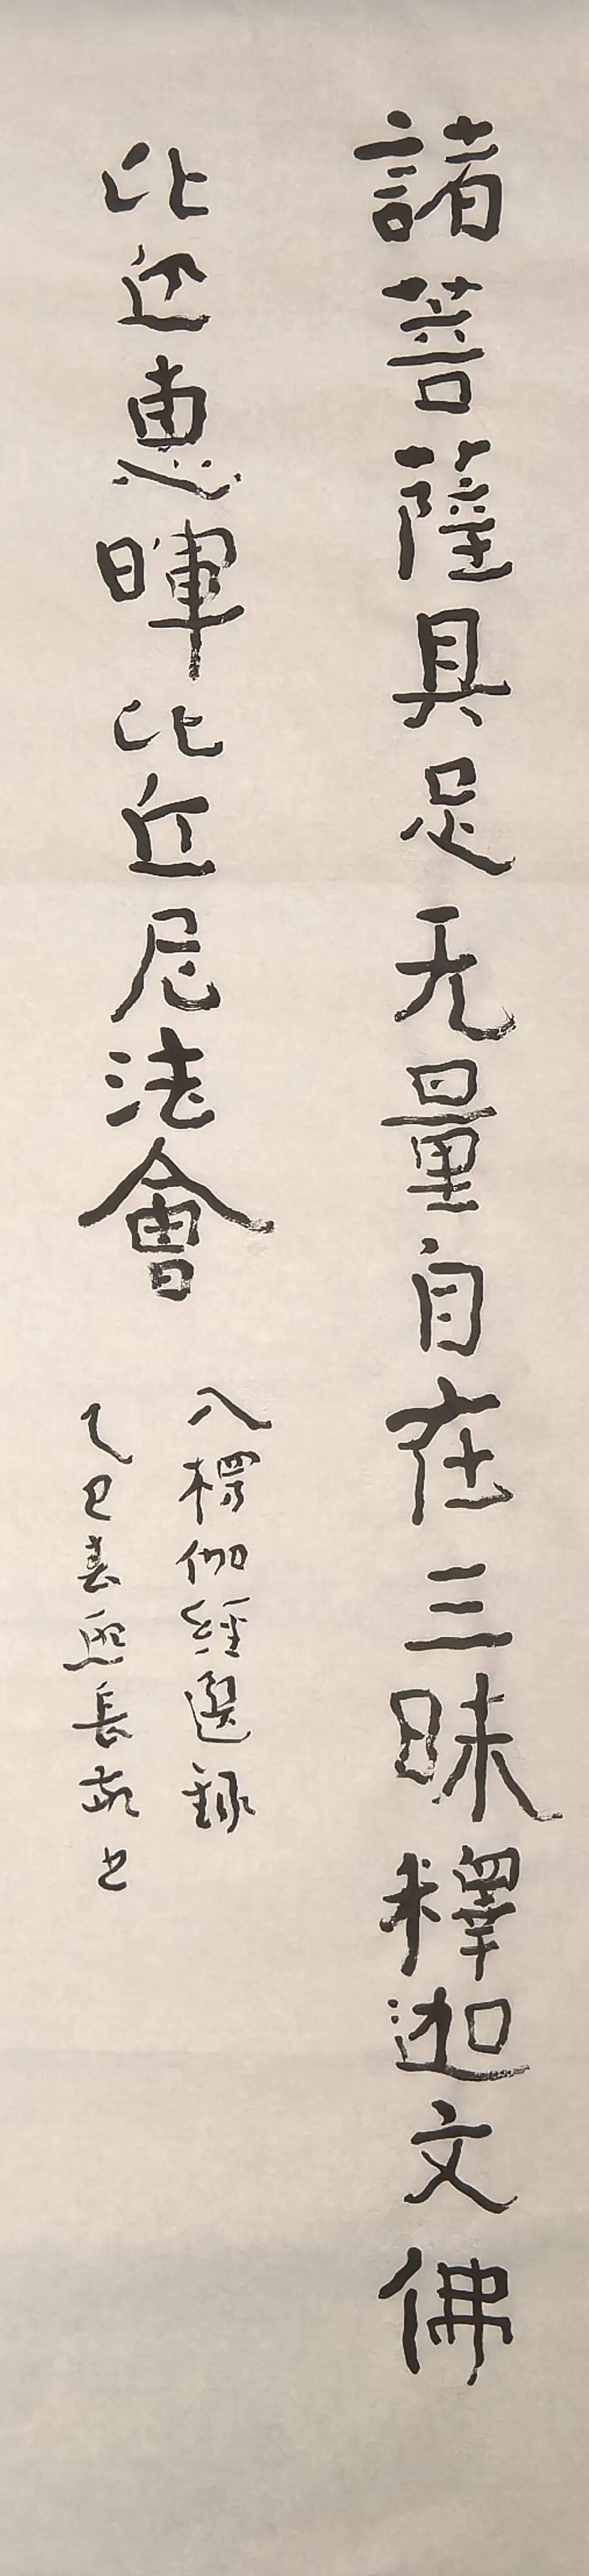 諸菩薩具足无量自在三昧釋迦文佛
比丘惠暉比丘尼法會
入楞伽經選録
乙巳春熙長